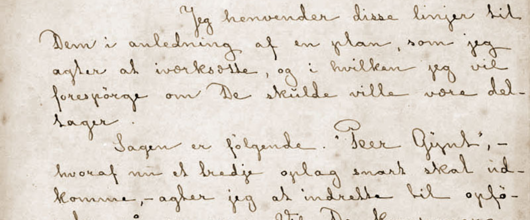 Jeg henvender disse linjer til
Dem i anledning af en plan, som jeg
agter at iværksætte, og i hvilken jeg vil
forespørge om De skulde ville være del-
tager.
Sagen er følgende. "Peer Gynt", –
hvoraf nu et tredje oplag snart skal ud-
komme, – agter jeg at indrette til opfø-